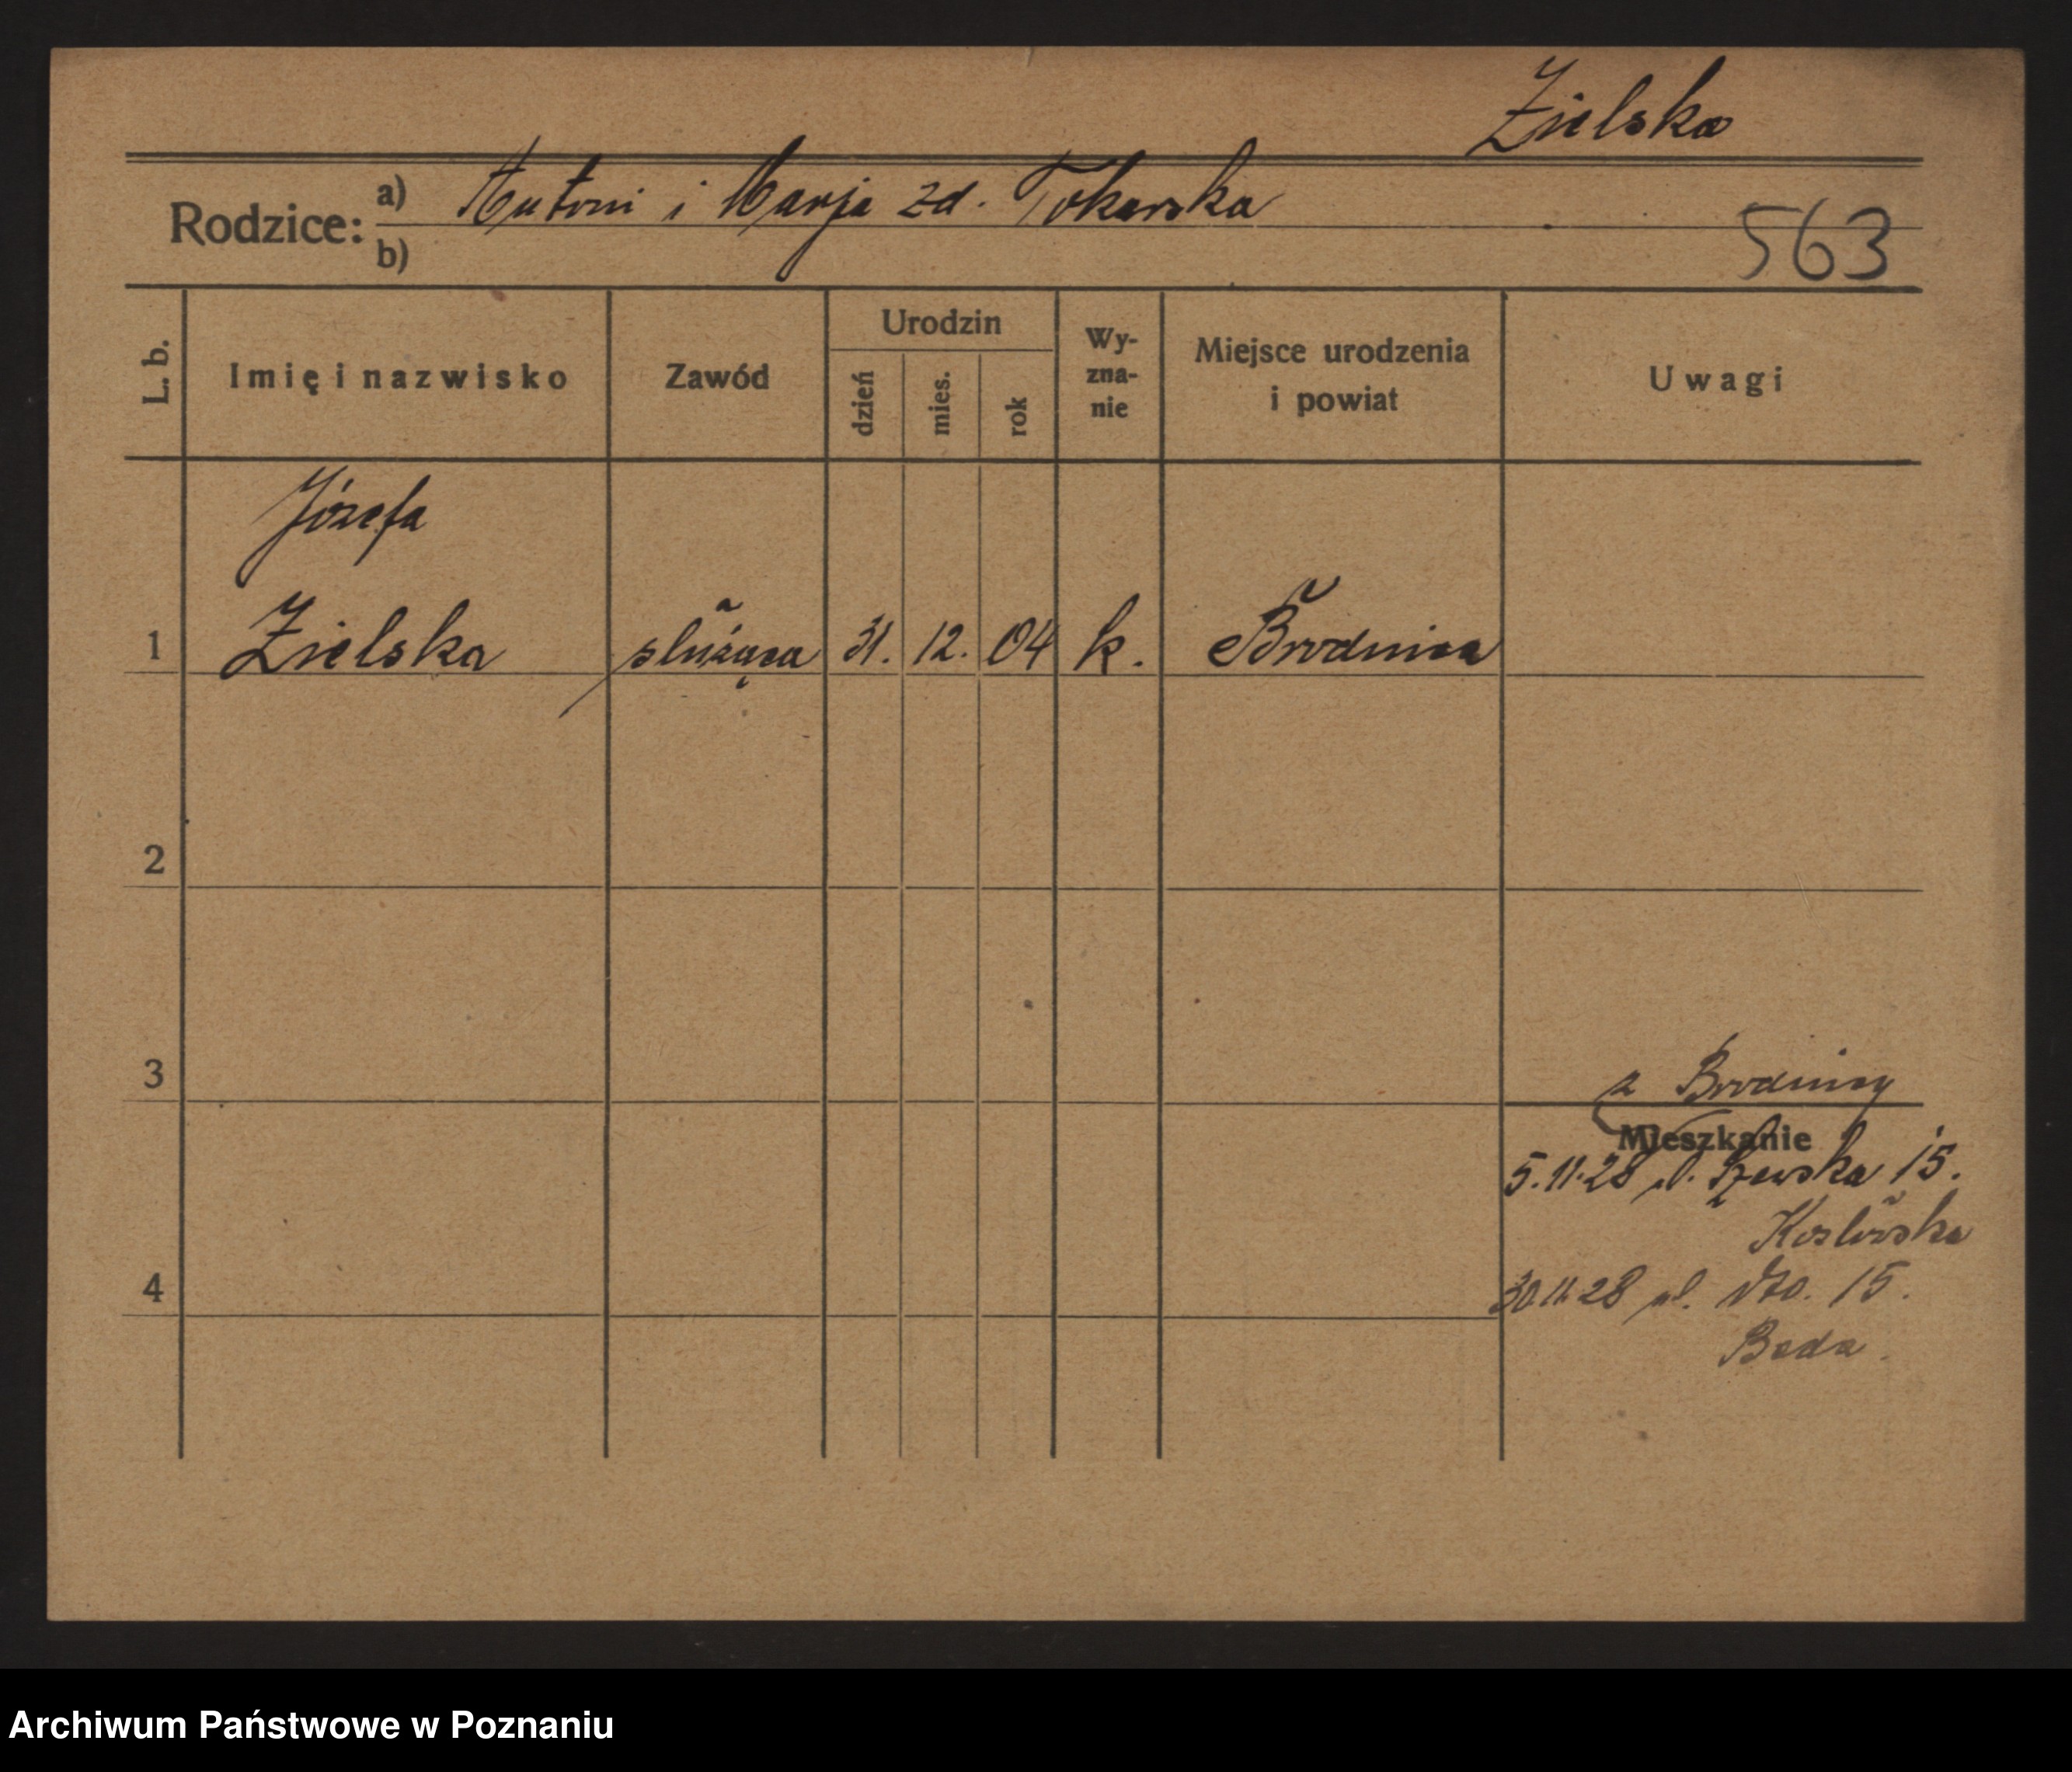 Zielska
Rodzice: a) Antoni i Marja zd. Tokarska
b)
563
L. b. Imię i nazwisko Zawód Urodzin dzień mies. rok Wy-zna-nie Miejsce urodzenia i powiat Uwagi
Józefa
1 Zielska służąca 31. 12. 04 k. Brodnica
2
3
z Brodnicy
Mieszkanie
5.11.28 ul. Szewska 15.
Kozlowska
4
30.11.28 ul. dto. 15.
Bada
Archiwum Państwowe w Poznaniu